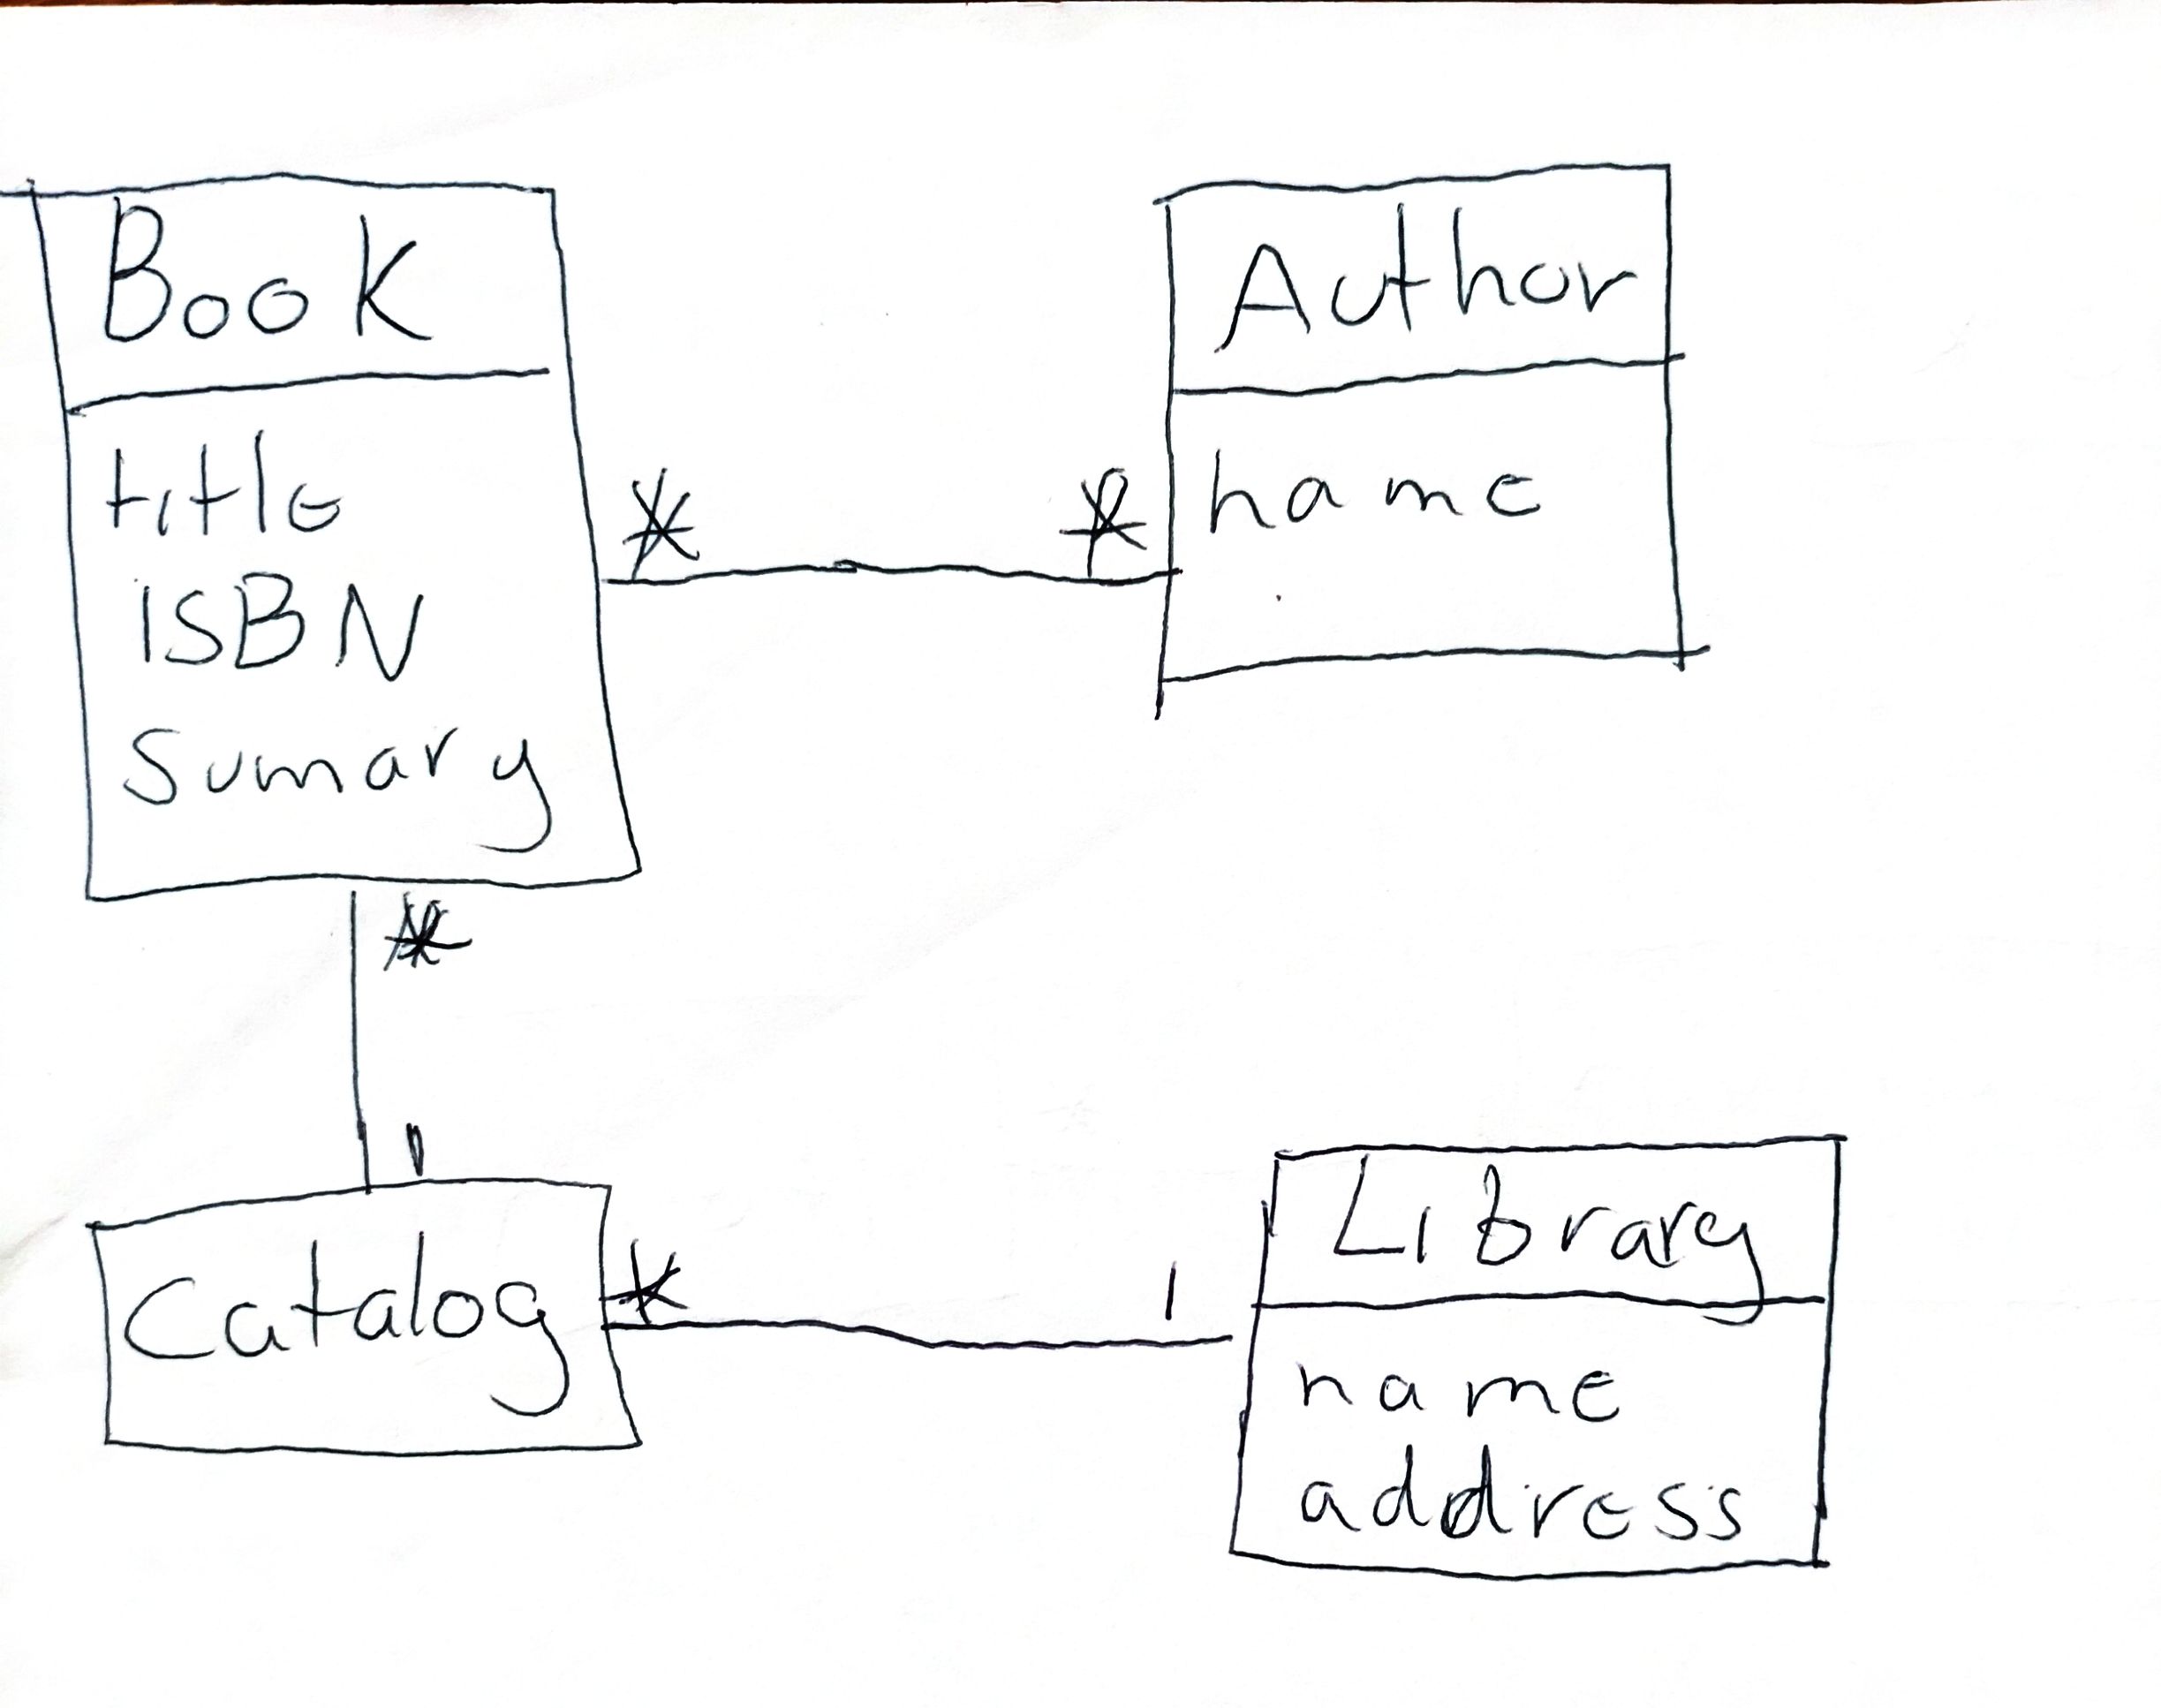 Book
title
ISBN
Sumary
*
*
Author
name
*
1
Catalog
*
1
Library
name
address